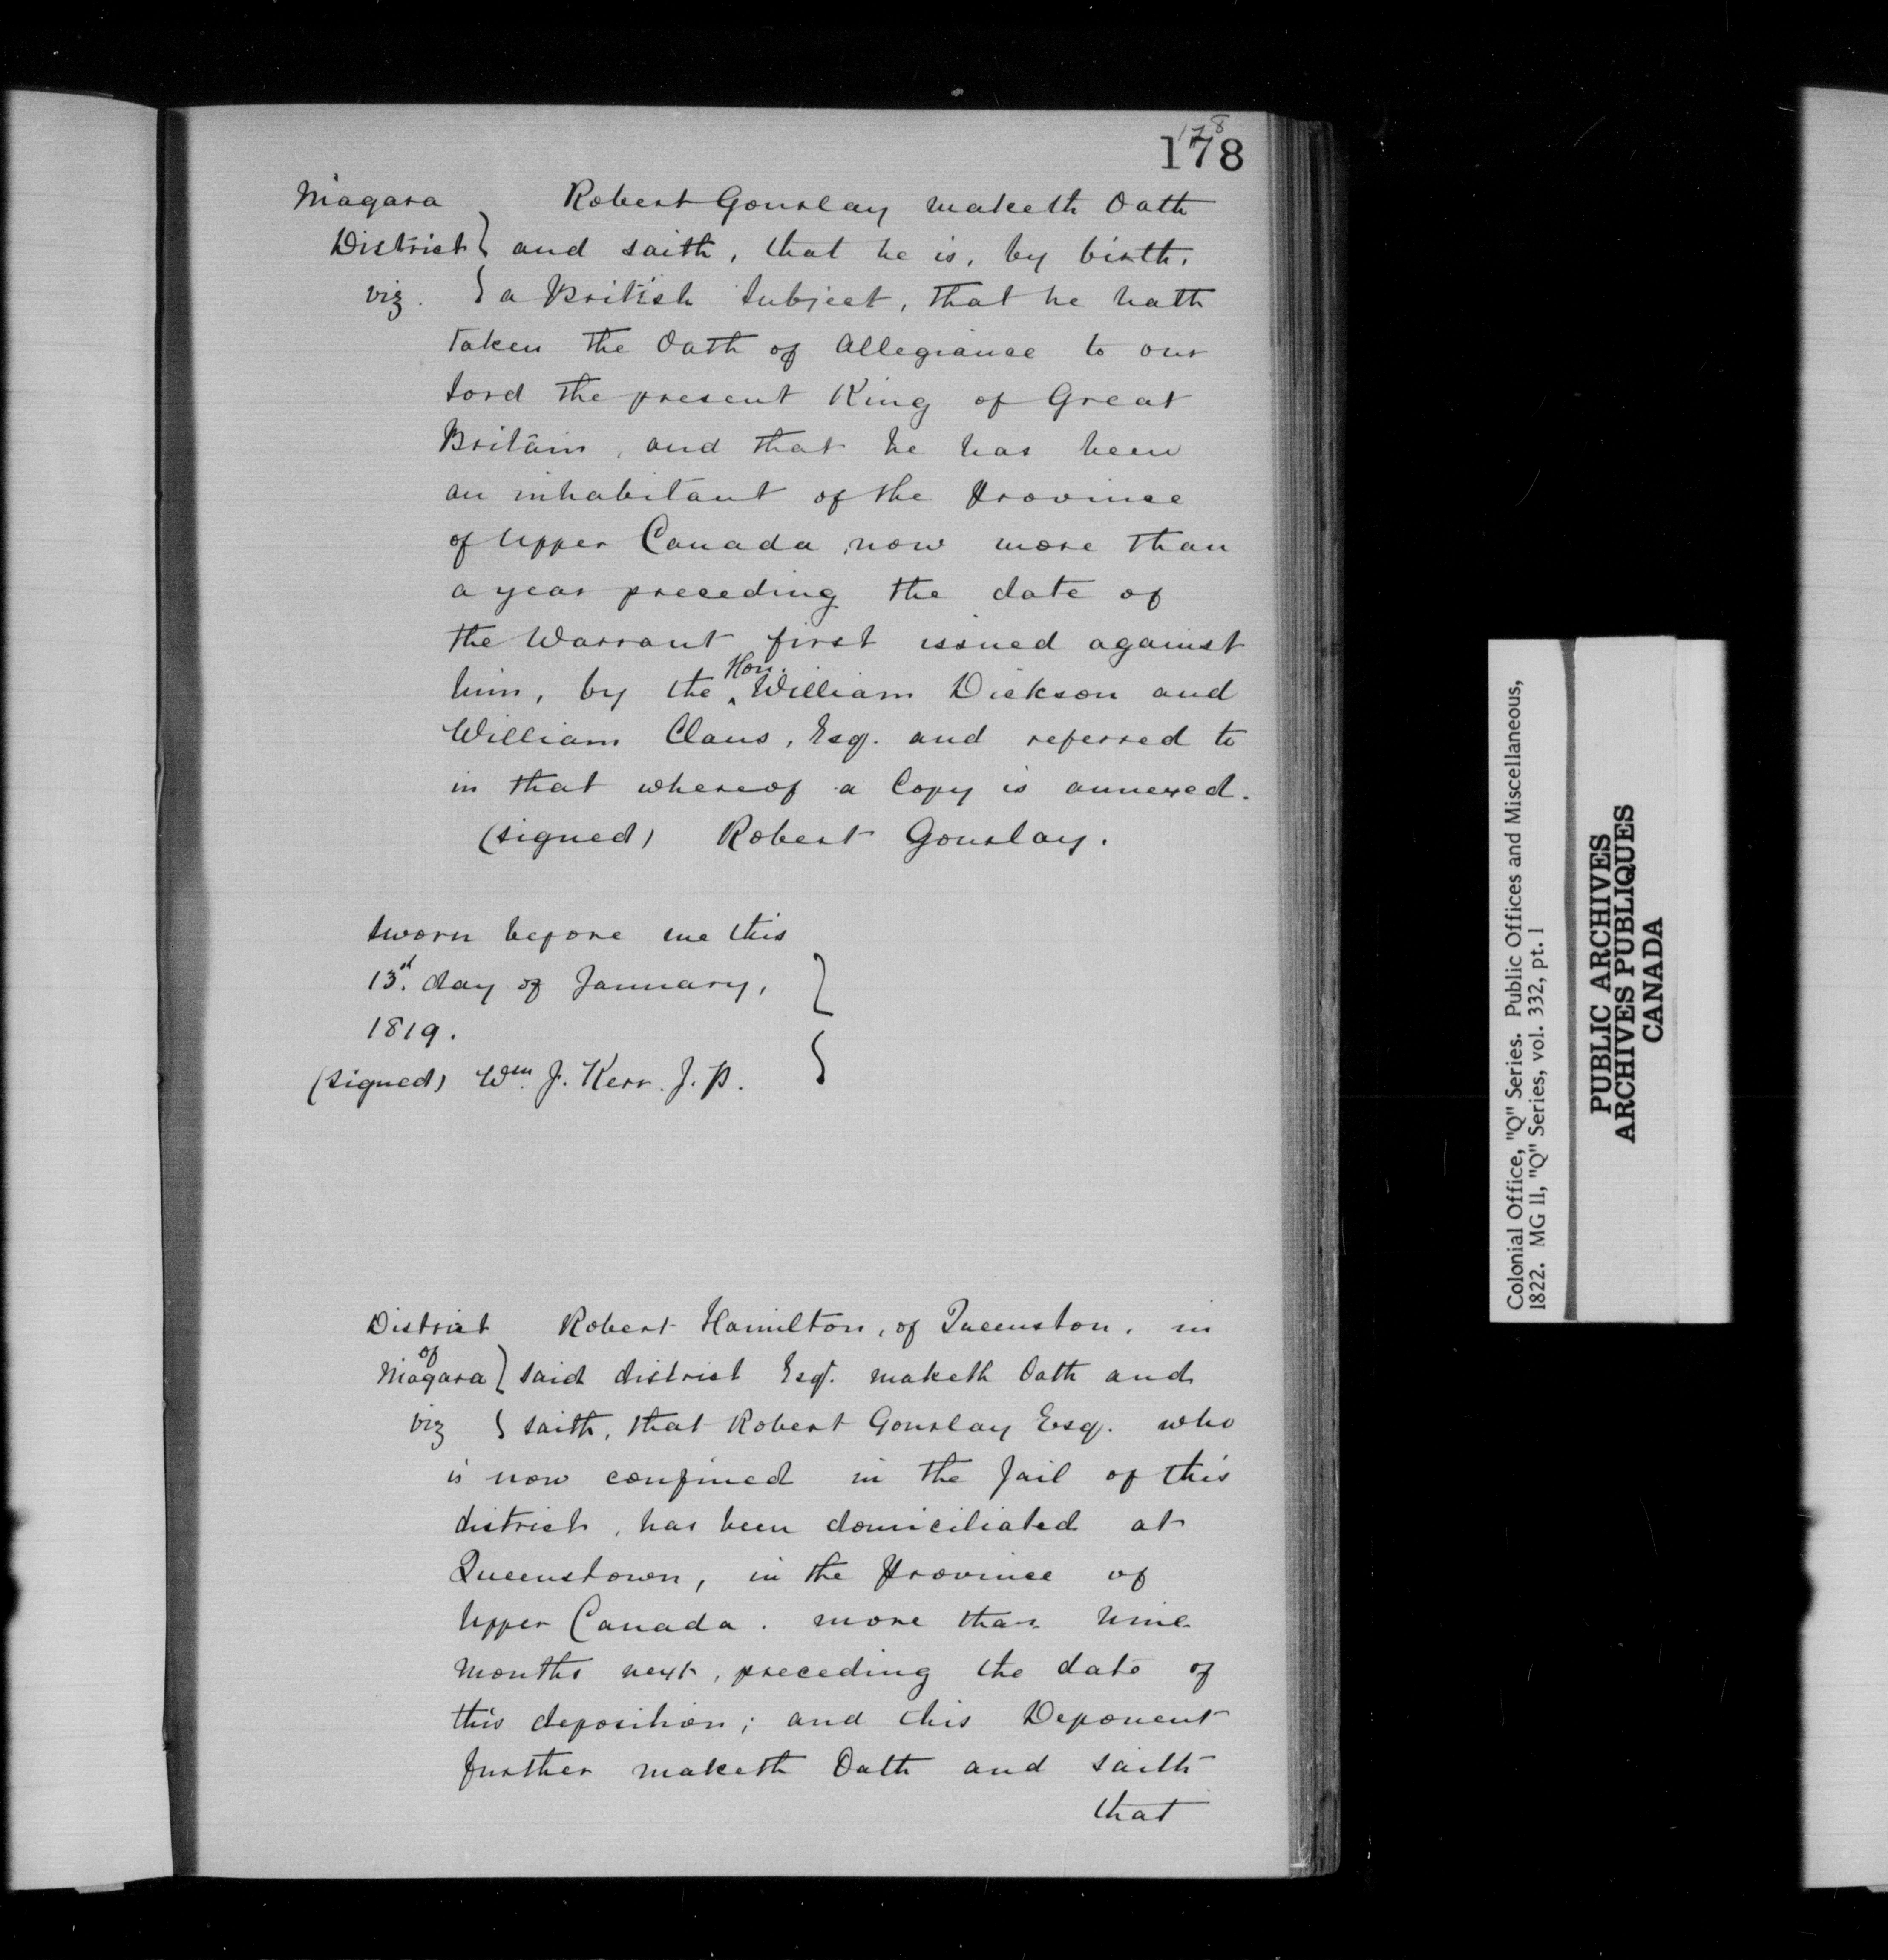 178
178
Niagara } Robert Gourlay maketh Oath
District } and saith, that he is, by birth,
viz. } a British Subject, that he hath
taken the Oath of Allegiance to our
Lord the present King of Great
Britain, and that he has been
an inhabitant of the Province
of Upper Canada now more than
a year preceding the date of
the Warrant first issued against
him, by the ^Hon. William Dickson and
William Claus, Esq. and referred to
in that whereof a Copy is annexed.
(signed) Robert Gourlay.
Sworn before me this
13th day of January,
1819.
(signed) Wm J. Kerr. J. P.
District Robert Hamilton, of Queenston, in
of
Niagara } said district Esqr. maketh Oath and
viz } saith, that Robert Gourlay Esq. who
is now confined in the Jail of this
district, has been domiciliated at
Queenstown, in the Province of
Upper Canada. more than nine
months next, preceding the date of
this deposition; and this Deponent
further maketh Oath and saith
that
Colonial Office, "Q" Series. Public Offices and Miscellaneous,
1822. MG 11, "Q" Series, vol. 332, pt. 1
PUBLIC ARCHIVES
ARCHIVES PUBLIQUES
CANADA